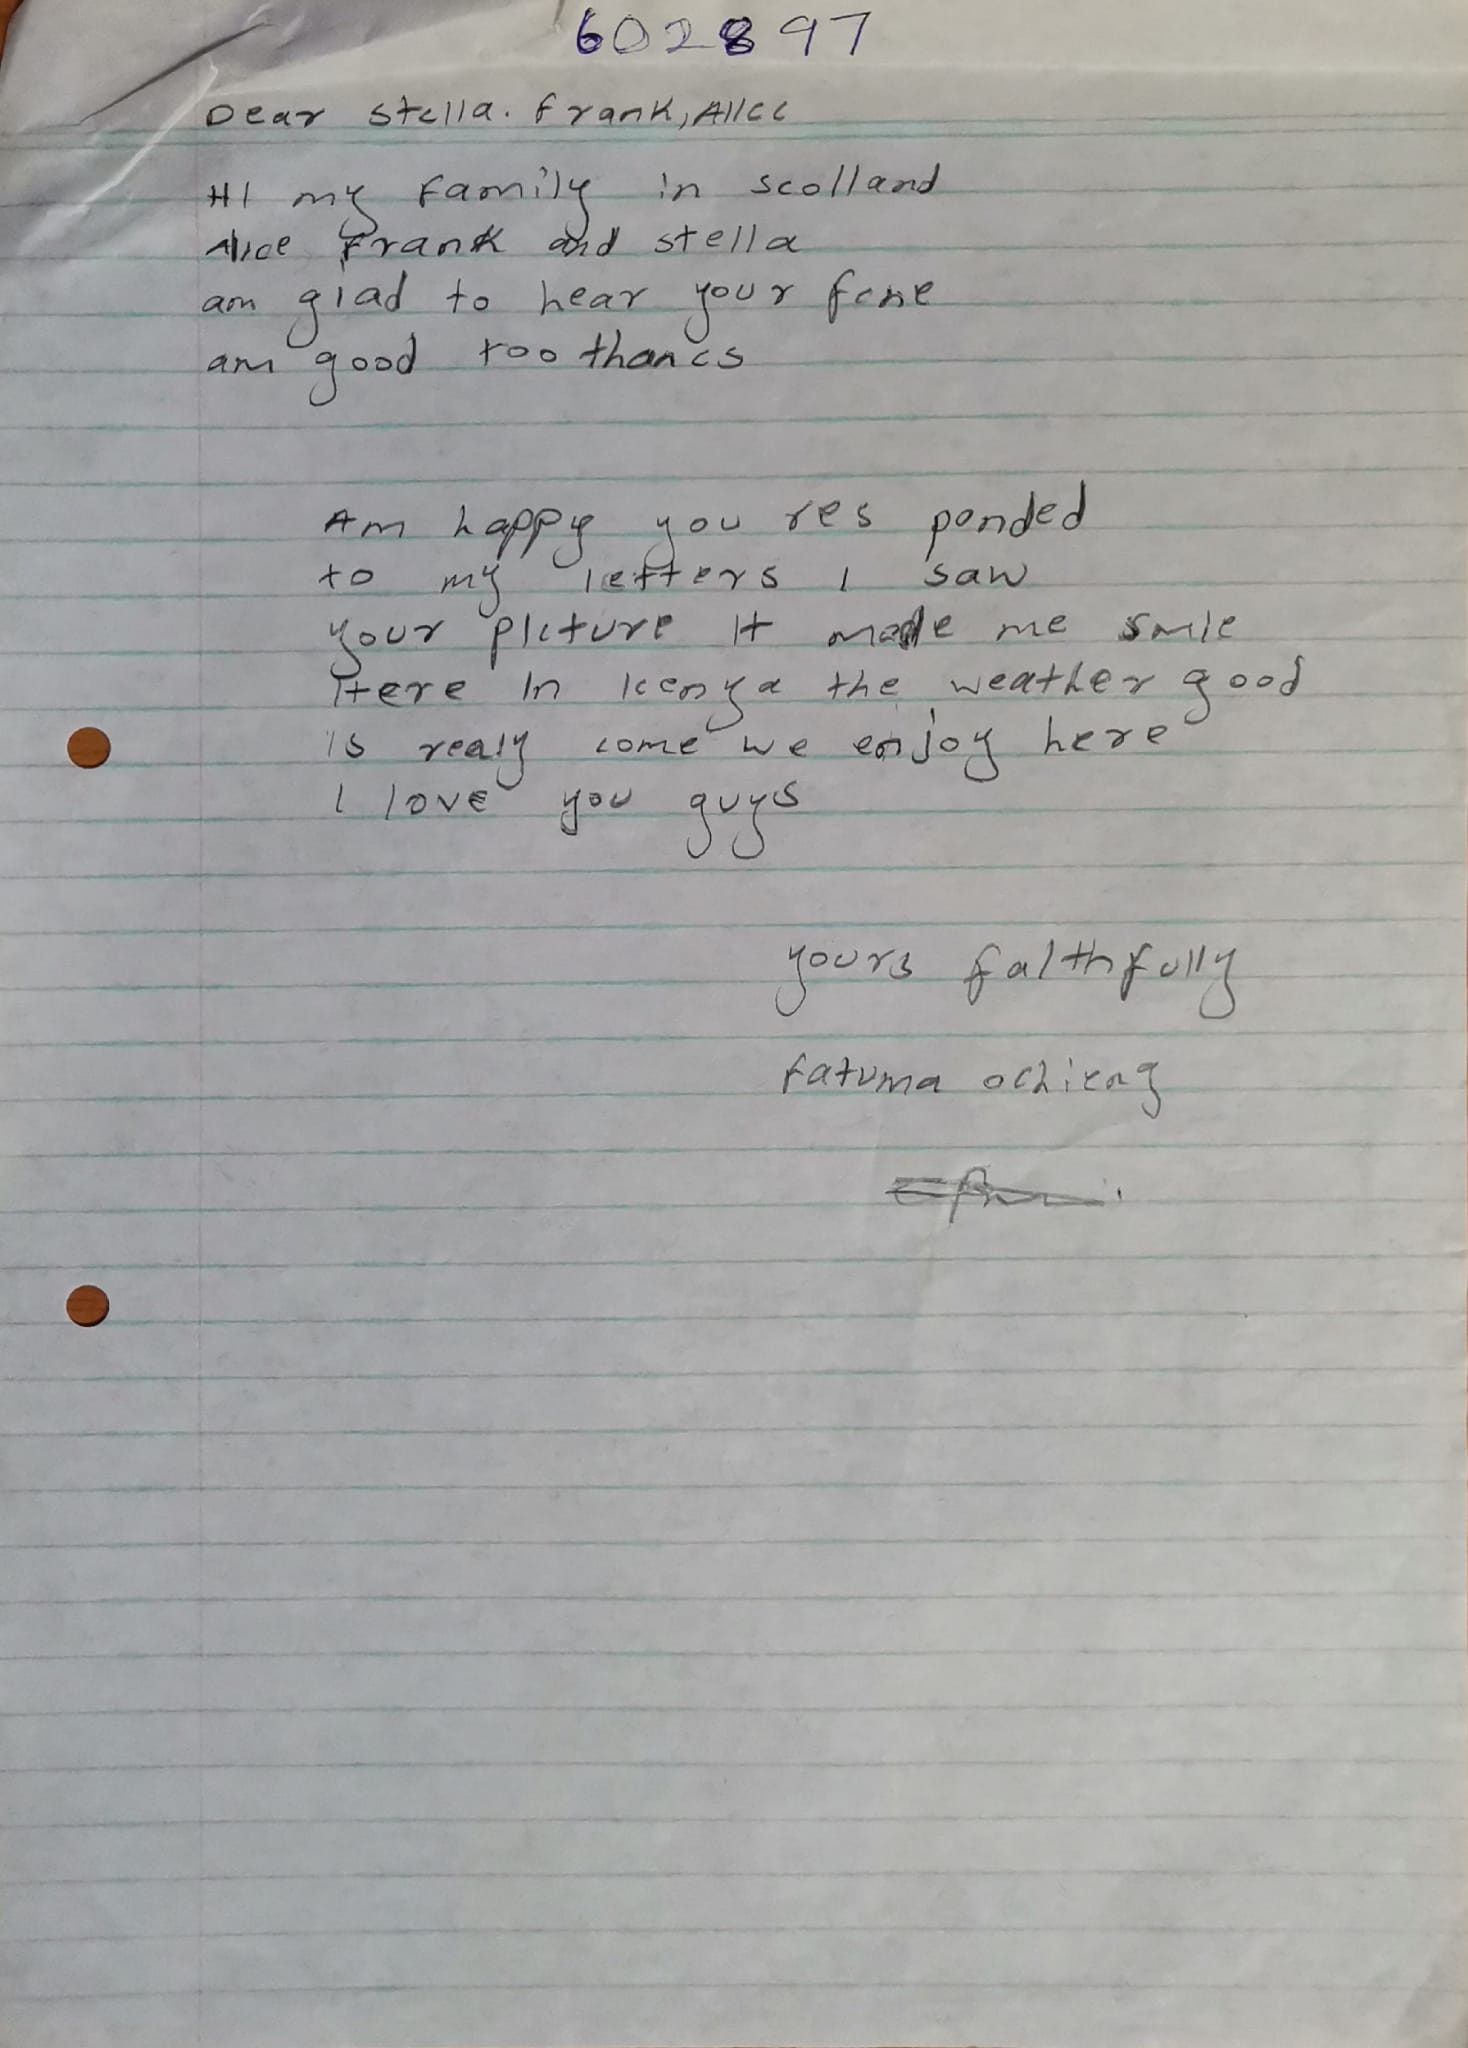 602897
Dear stella. frank, Allcc
HI my family in scolland
Alice Frank and stella
am glad to hear your fene
am good too thancs
Am happy you res ponded
to my letters I saw
your picture It made me smile
Here In kenya the weather good
is realy come we enjoy here
I love you guys
yours falthfully
fatuma ochieng